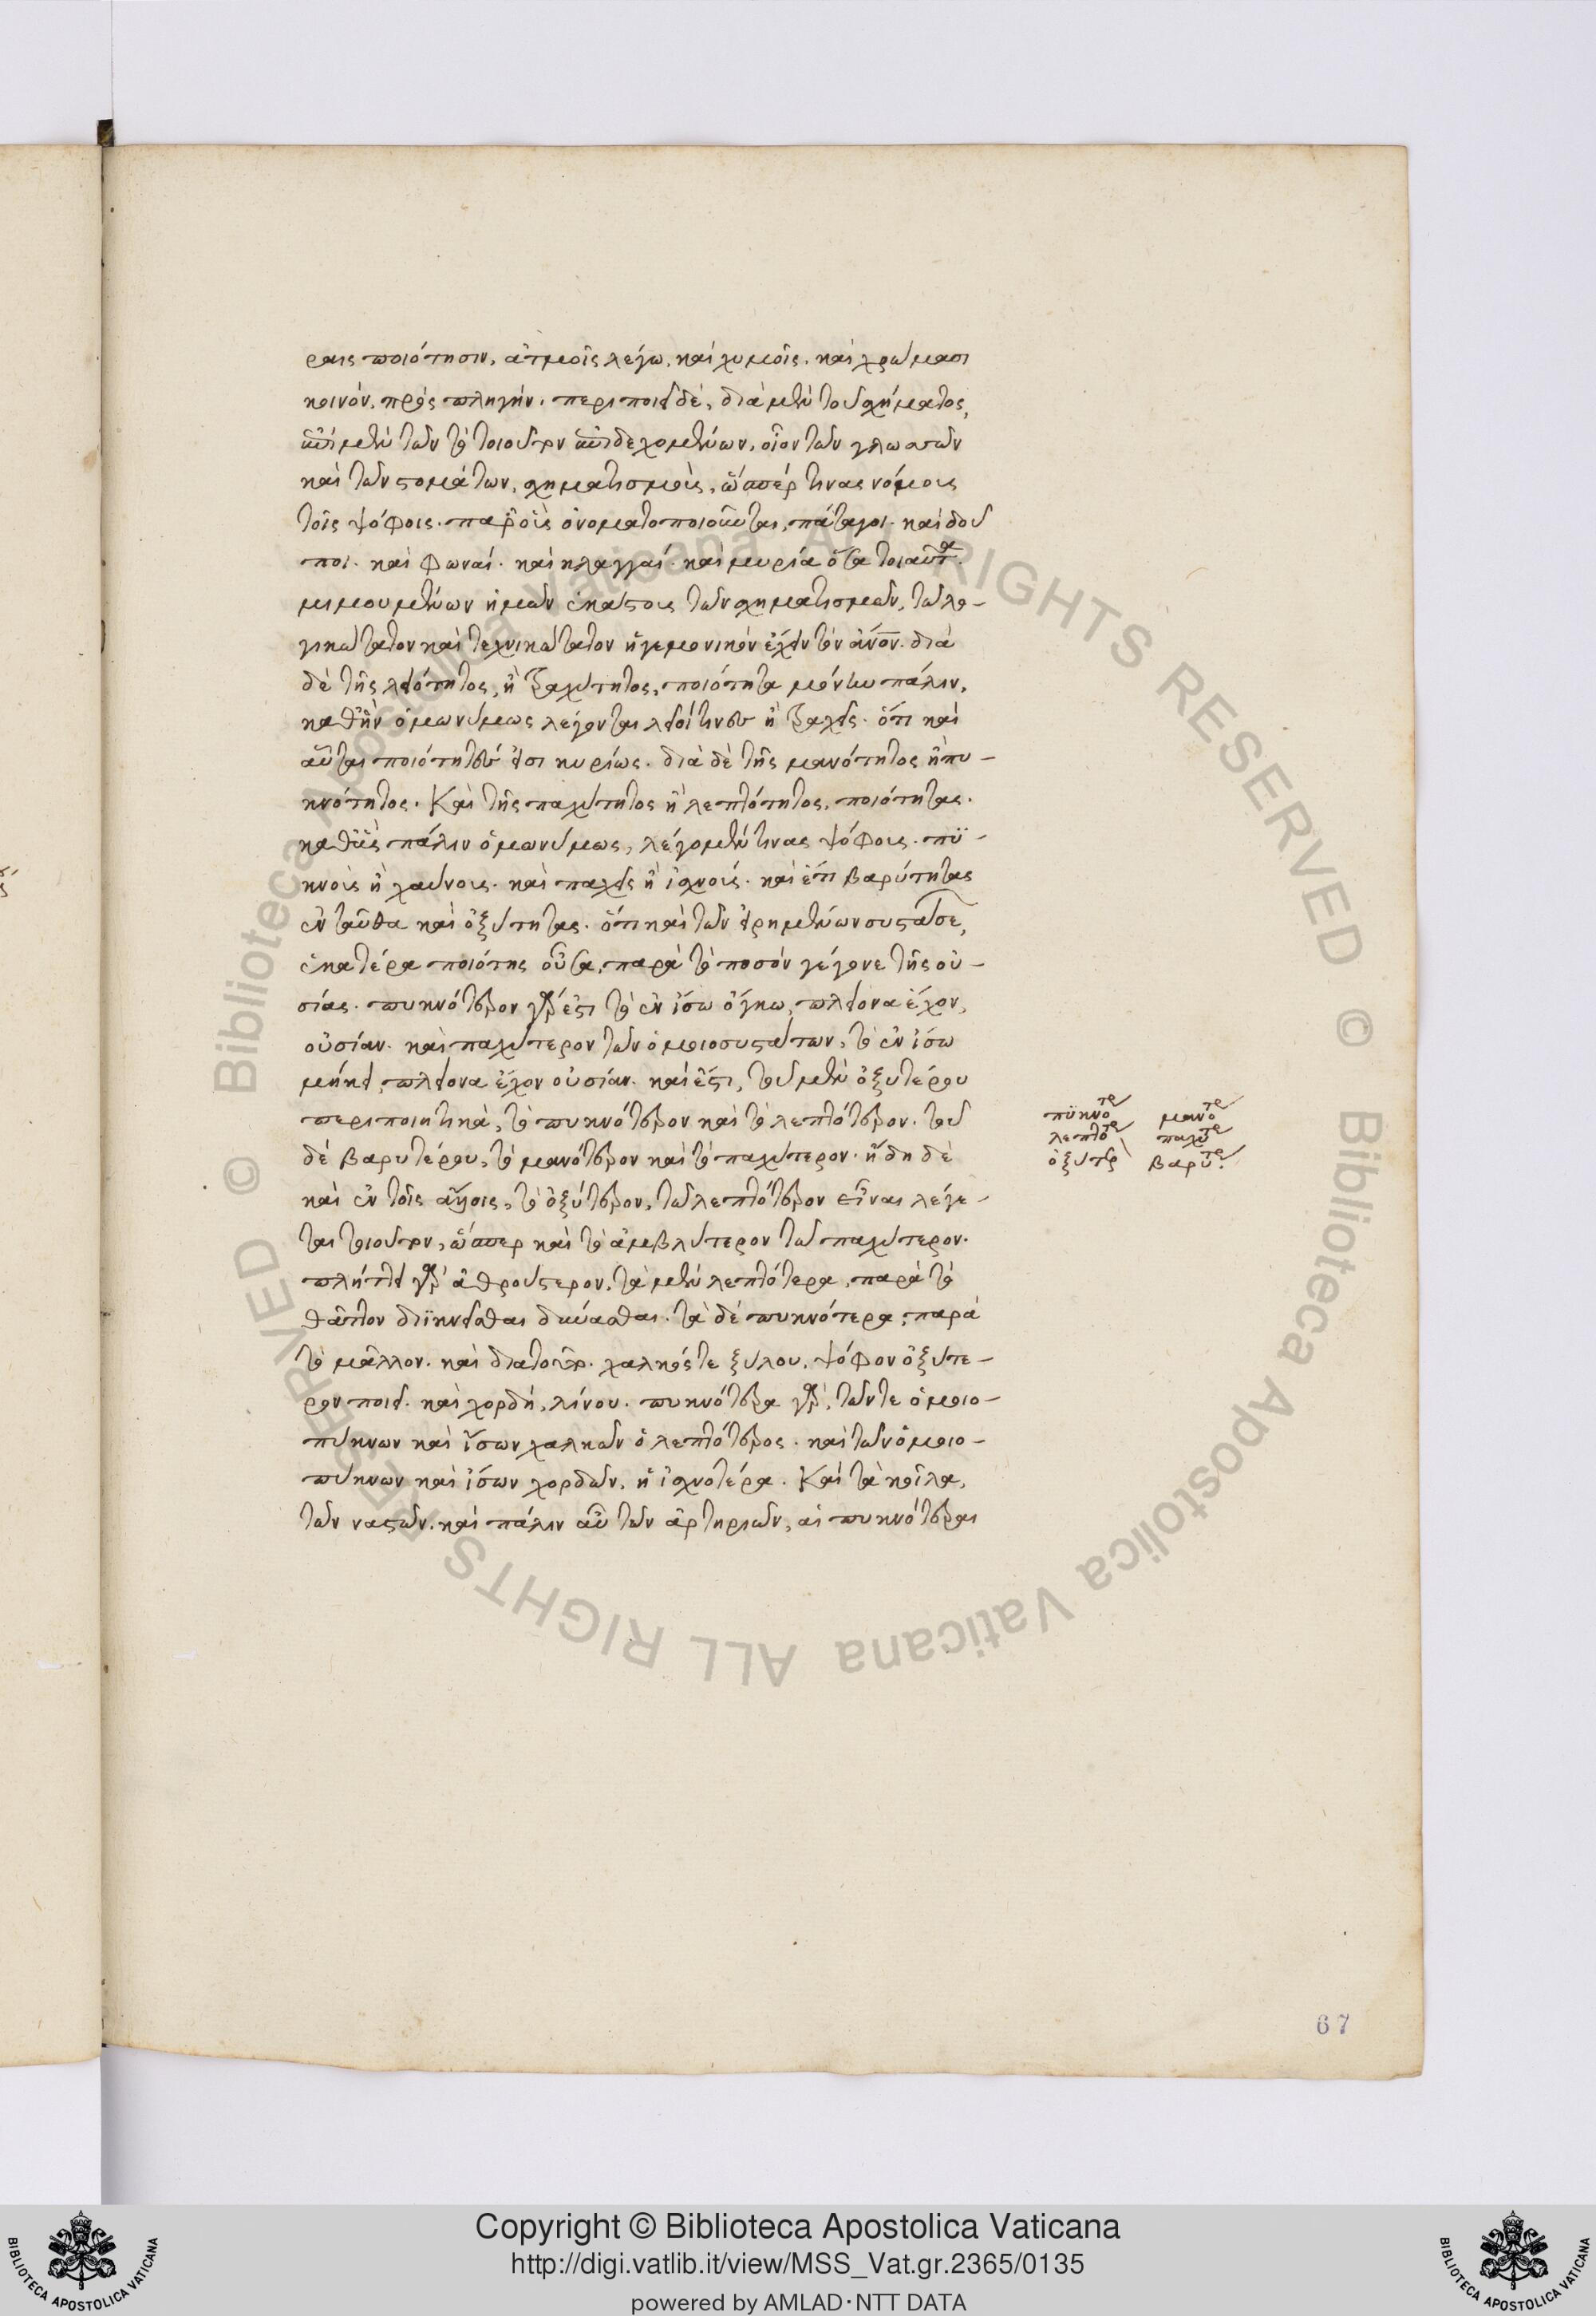 ραις ποιότησιν, ἀτμοῖς λέγω, καὶ χυμοῖς. καὶ χρώμασι
κοινόν, πρὸς πληγήν. περιποιεῖ δὲ, διὰ μὲν τοῦ σχήματος,
ἐπὶ μὲν τῶν τὸ τοιοῦτον ἐπιδεχομένων, οἷον τῶν γλωσσῶν
καὶ τῶν στομάτων, σχηματισμοὺς, ὥσπέρ τινας νόμους
τοῖς ψόφοις. παρ' οὓς ὀνοματοποιοῦνται, πάταγοι. καὶ δοῦ
ποι. καὶ φωναί. καὶ κλαγγαί. καὶ μυρία ὅσα τοιαῦτα.
μιμουμένων ἡμῶν ἑκάστους τῶν σχηματισμῶν, τῶ λο-
γικώτατον καὶ τεχνικώτατον ἡγεμονικὸν ἔχειν τὸν ἄνον. διὰ
δὲ τῆς λειότητος, ἢ τραχύτητος, ποιότητα μόνην πάλιν,
καθ' ἣν ὁμωνύμως λέγονται λεῖοί τινες ἢ τραχεῖς. ὅτι καὶ
αὗται ποιότητές εἰσι κυρίως. διὰ δὲ τῆς μανότητος ἢ πυ-
κνότητος. Καὶ τῆς παχύτητος ἢ λεπτότητος, ποιότητας.
καθ' ἃς πάλιν ὁμωνύμως, λέγομέν τινας ψόφους. πϋ-
κνοὺς ἢ χαύνους. καὶ παχεῖς ἢ ἰσχνούς. καὶ ἔτι βαρύτητας
ἐνταῦθα καὶ ὀξύτητας. ὅτι καὶ τῶν εἰρημένων συστάσεων,
ἑκατέρα ποιότης οὖσα, παρὰ τὸ ποσὸν γέγονε τῆς οὐ-
σίας. πυκνότερον γάρ ἐστι τὸ ἐν ἴσω ὄγκω, πλείονα ἔχον,
οὐσίαν. καὶ παχύτερον τῶν ὁμοιοσυστάτων, τὸ ἐν ἴσω
μήκει, πλείονα ἔχον οὐσίαν. καὶ ἔστι, τοῦ μὲν ὀξυτέρου
περιποιητικὰ, τὸ πυκνότερον καὶ τὸ λεπτότερον. τοῦ
δὲ βαρυτέρου, τὸ μανότερον καὶ τὸ παχύτερον. ἤδη δὲ
καὶ ἐν τοῖς ἄλλοις, τὸ ὀξύτερον, τῶ λεπτότερον εἶναι λέγε-
ται τοιοῦτον, ὥσπερ καὶ τὸ ἀμβλύτερον τῶ παχύτερον.
πλήττει γὰρ ἀθρούστερον, τὰ μὲν λεπτότερα, παρὰ τὸ
θᾶττον διϊκνεῖσθαι δύνασθαι. τὰ δὲ πυκνότερα, παρὰ
τὸ μᾶλλον. καὶ διατοῦτο. χαλκός τε ξύλου, ψόφον ὀξύτε-
ρον ποιεῖ. καὶ χορδὴ, λίνου. πυκνότερα γάρ, τῶν τε ὁμοιο-
πύκνων καὶ ἴσων χαλκῶν ὁ λεπτότερος. καὶ τῶν ὁμοιο-
πύκνων καὶ ἴσων χορδῶν, ἡ ἰσχνοτέρα. Καὶ τὰ κοῖλα,
τῶν ναστῶν. καὶ πάλιν αὖ τῶν ἀρτηριῶν, αἱ πυκνότεραι
πϋκνότερ μανότερ
λεπτότερ παχύτερ
ὀξύτερ βαρύτερ.
67
Copyright © Biblioteca Apostolica Vaticana
http://digi.vatlib.it/view/MSS_Vat.gr.2365/0135
powered by AMLAD·NTT DATA
© Biblioteca Apostolica Vaticana ALL RIGHTS RESERVED © Biblioteca Apostolica Vaticana ALL RIGHTS RESERVED
BIBLIOTECA APOSTOLICA VATICANA
BIBLIOTECA APOSTOLICA VATICANA